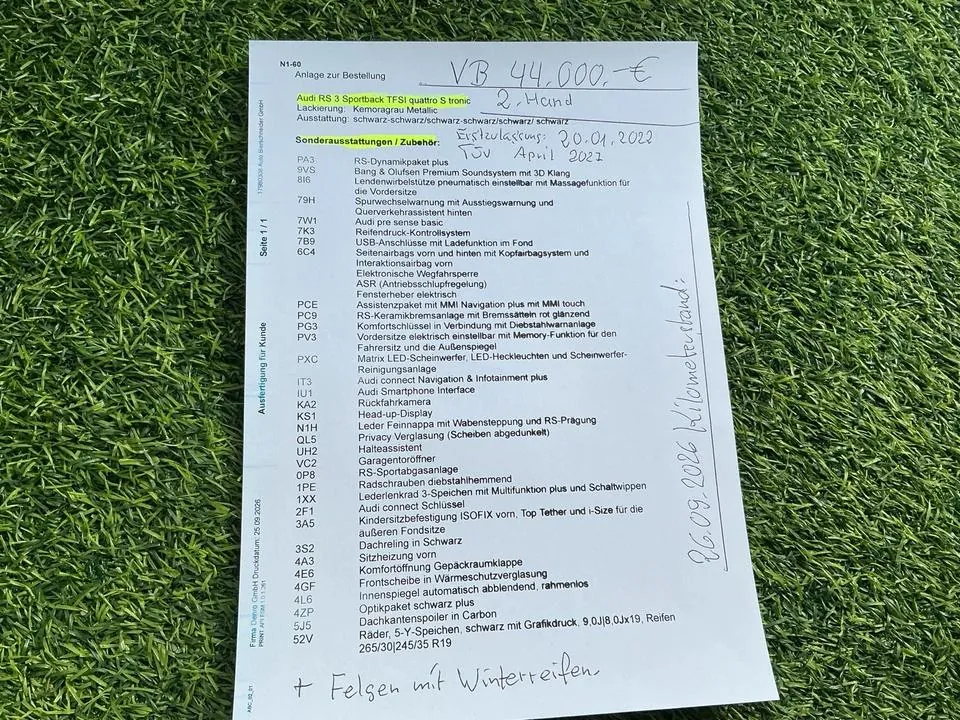 N1-60
Anlage zur Bestellung
VB 44.000.-€
Audi RS 3 Sportback TFSI quattro S tronic
2. Hand
Lackierung: Kemoragrau Metallic
Ausstattung: schwarz-schwarz/schwarz-schwarz/schwarz/ schwarz
Erstzulassung: 20.01.2022
Sonderausstattungen / Zubehör:
TÜV April 2027
PA3 RS-Dynamikpaket plus
9VS Bang & Olufsen Premium Soundsystem mit 3D Klang
8I6 Lendenwirbelstütze pneumatisch einstellbar mit Massagefunktion für
die Vordersitze
79H Spurwechselwarnung mit Ausstiegswarnung und
Querverkehrassistent hinten
7W1 Audi pre sense basic
7K3 Reifendruck-Kontrollsystem
7B9 USB-Anschlüsse mit Ladefunktion im Fond
6C4 Seitenairbags vorn und hinten mit Kopfairbagsystem und
Interaktionsairbag vorn
Elektronische Wegfahrsperre
ASR (Antriebsschlupfregelung)
Fensterheber elektrisch
PCE Assistenzpaket mit MMI Navigation plus mit MMI touch
PC9 RS-Keramikbremsanlage mit Bremssätteln rot glänzend
PG3 Komfortschlüssel in Verbindung mit Diebstahlwarnanlage
PV3 Vordersitze elektrisch einstellbar mit Memory-Funktion für den
Fahrersitz und die Außenspiegel
PXC Matrix LED-Scheinwerfer, LED-Heckleuchten und Scheinwerfer-
Reinigungsanlage
IT3 Audi connect Navigation & Infotainment plus
IU1 Audi Smartphone Interface
KA2 Rückfahrkamera
KS1 Head-up-Display
N1H Leder Feinnappa mit Wabensteppung und RS-Prägung
QL5 Privacy Verglasung (Scheiben abgedunkelt)
UH2 Halteassistent
VC2 Garagentoröffner
0P8 RS-Sportabgasanlage
1PE Radschrauben diebstahlhemmend
1XX Lederlenkrad 3-Speichen mit Multifunktion plus und Schaltwippen
2F1 Audi connect Schlüssel
3A5 Kindersitzbefestigung ISOFIX vorn, Top Tether und i-Size für die
äußeren Fondsitze
3S2 Dachreling in Schwarz
4A3 Sitzheizung vorn
4E6 Komfortöffnung Gepäckraumklappe
4GF Frontscheibe in Wärmeschutzverglasung
4L6 Innenspiegel automatisch abblendend, rahmenlos
4ZP Optikpaket schwarz plus
5J5 Dachkantenspoiler in Carbon
52V Räder, 5-Y-Speichen, schwarz mit Grafikdruck, 9,0J|8,0Jx19, Reifen
265/30|245/35 R19
+ Felgen mit Winterreifen.
26.09.2026 Kilometerstand:
Seite 1 / 1
Ausfertigung für Kunde
Druckdatum: 25.09.2026